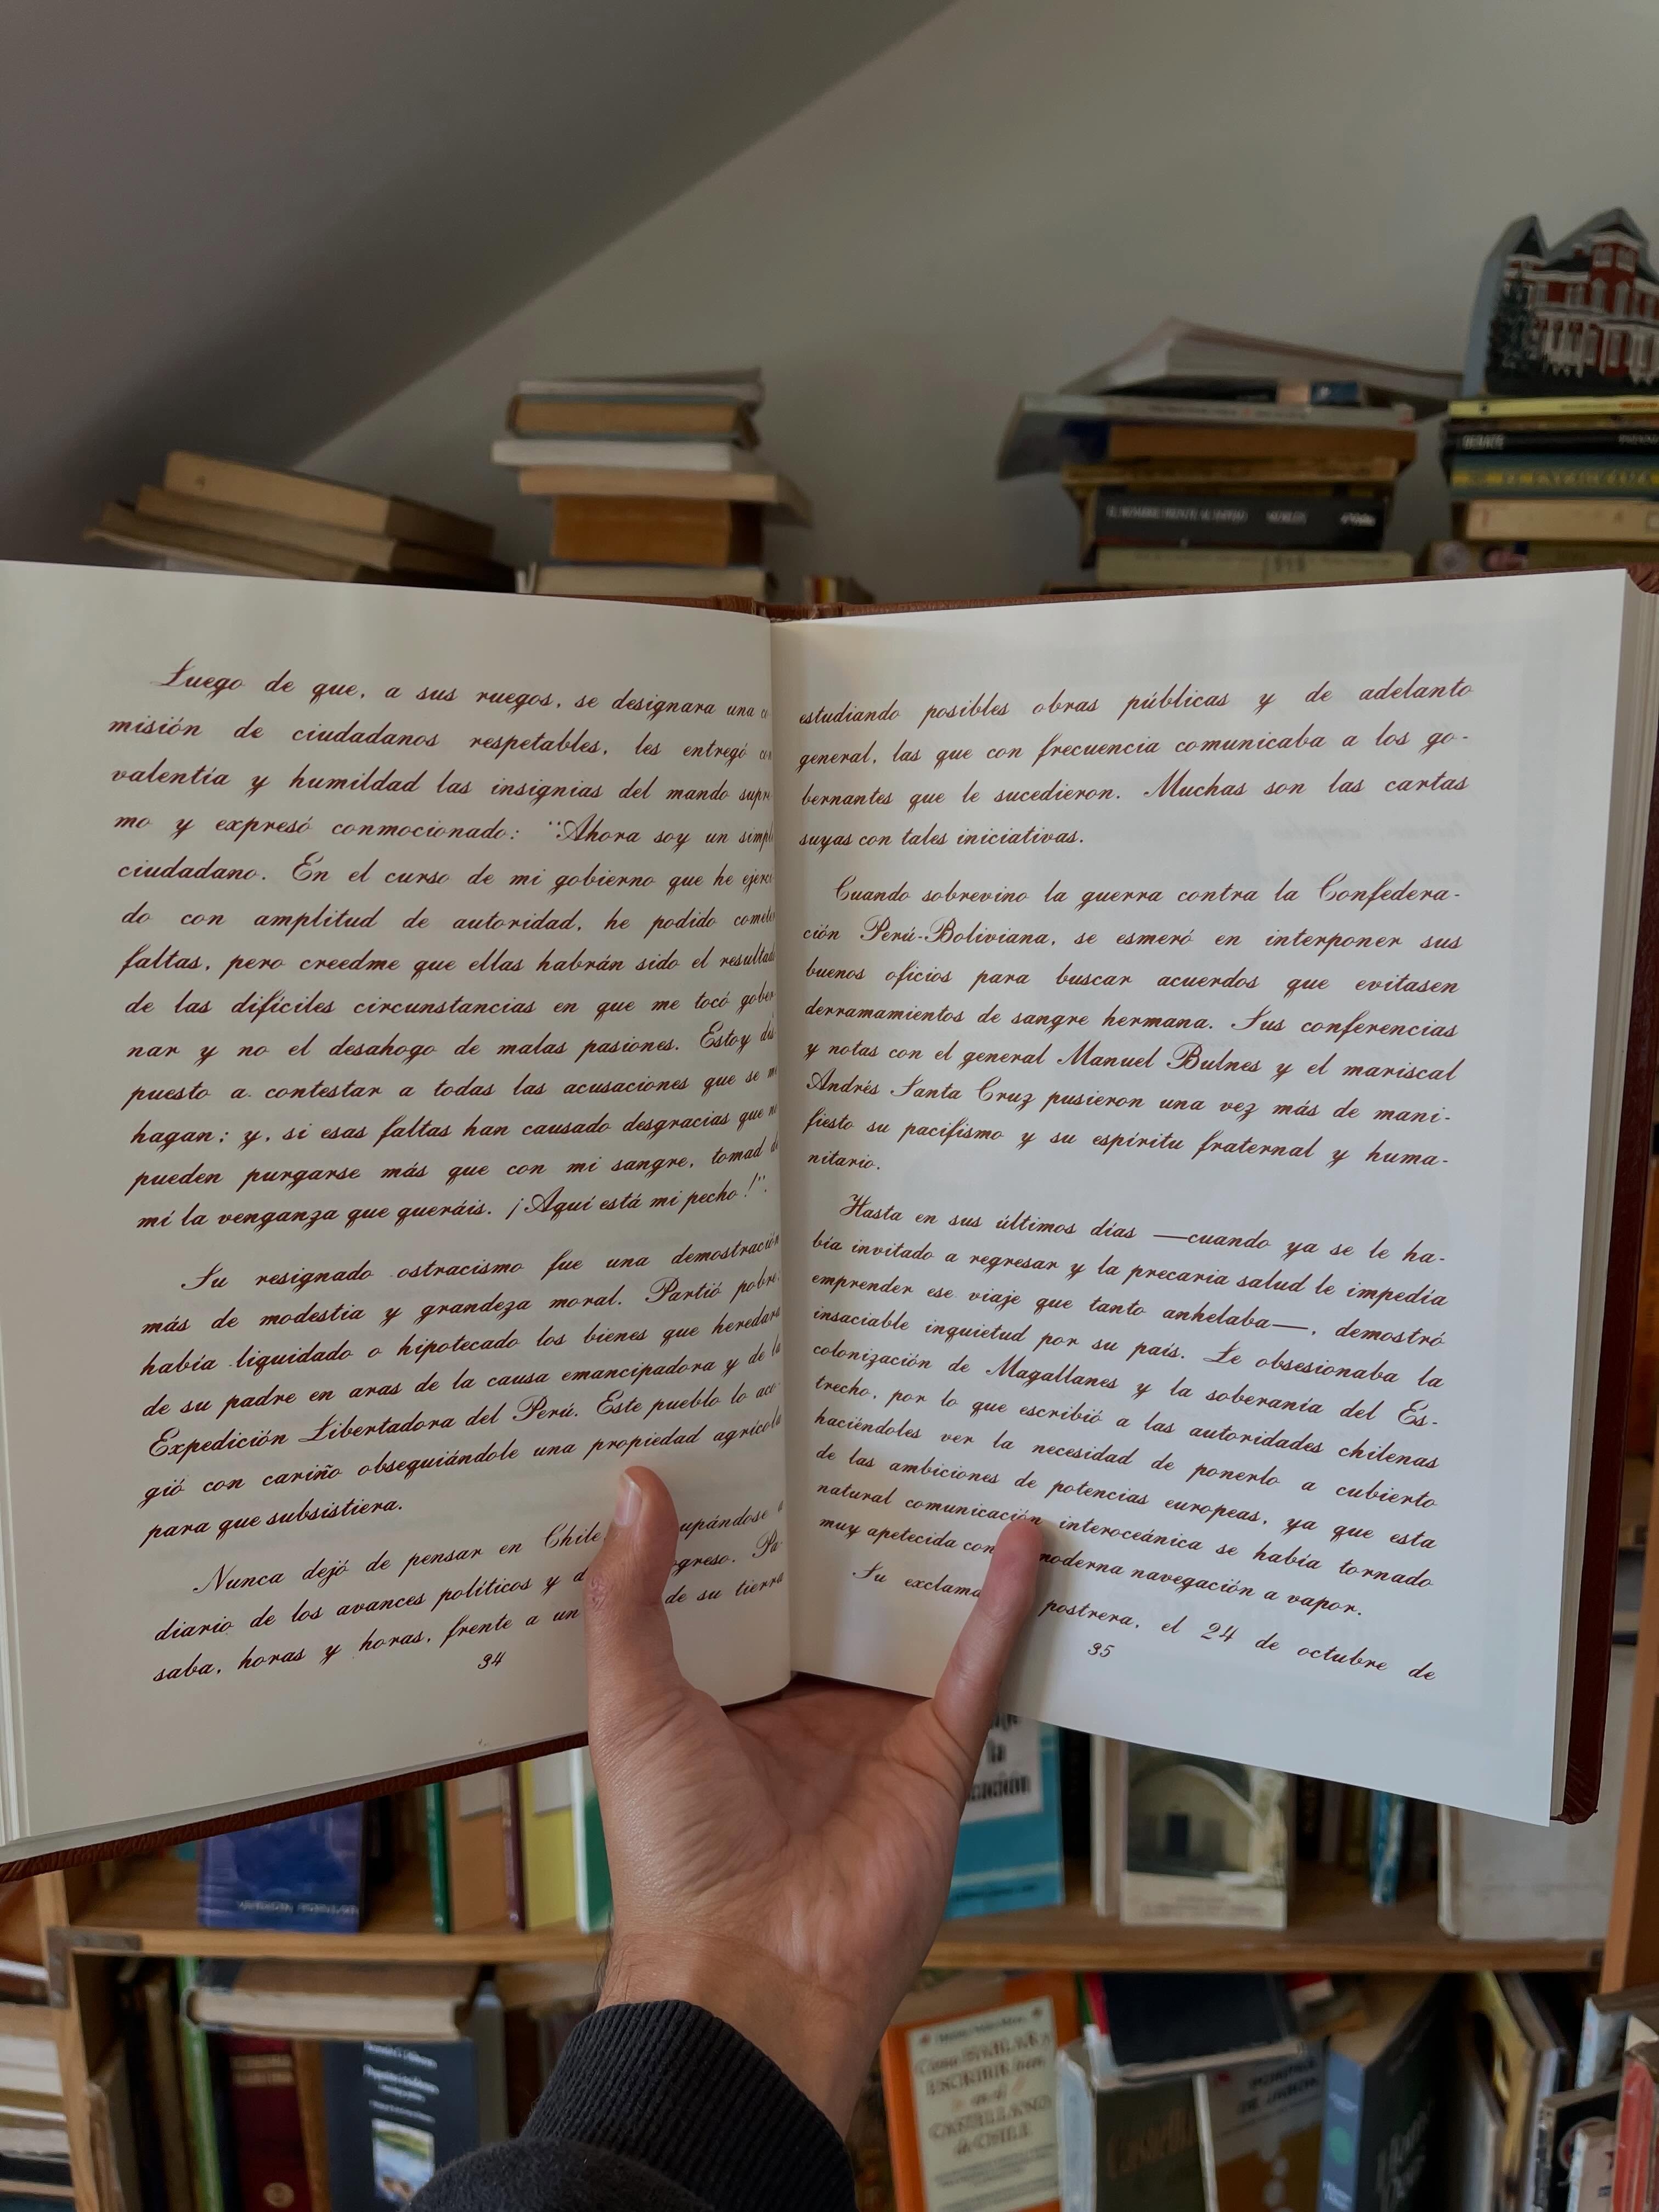 DEBATE
EL HOMBRE FRENTE AL
Luego de que, a sus ruegos, se designara una
misión de ciudadanos respetables, les entregó
valentía y humildad las insignias del mando supr
mo y expresó conmocionado: "Ahora soy un simpl
ciudadano. En el curso de mi gobierno que he ejerc
do con amplitud de autoridad, he podido comete
faltas, pero creedme que ellas habrán sido el resultad
de las difíciles circunstancias en que me tocó gober
nar y no el desahogo de malas pasiones. Estoy dis
puesto a contestar a todas las acusaciones que se m
hagan; y, si esas faltas han causado desgracias que n
pueden purgarse más que con mi sangre, tomad d
mí la venganza que queráis. ¡Aquí está mi pecho!".
Su resignado ostracismo fue una demostración
más de modestia y grandeza moral. Partió pobre,
había liquidado o hipotecado los bienes que heredara
de su padre en aras de la causa emancipadora y de la
Expedición Libertadora del Perú. Este pueblo lo aco-
gió con cariño obsequiándole una propiedad agrícola
para que subsistiera.
Nunca dejó de pensar en Chile upándose a
diario de los avances políticos y d ogreso. Pa-
saba, horas y horas, frente a un de su tierra
34
estudiando posibles obras públicas y de adelanto
general, las que con frecuencia comunicaba a los go-
bernantes que le sucedieron. Muchas son las cartas
suyas con tales iniciativas.
Cuando sobrevino la guerra contra la Confedera-
ción Perú-Boliviana, se esmeró en interponer sus
buenos oficios para buscar acuerdos que evitasen
derramamientos de sangre hermana. Sus conferencias
y notas con el general Manuel Bulnes y el mariscal
Andrés Santa Cruz pusieron una vez más de mani-
fiesto su pacifismo y su espíritu fraternal y huma-
nitario.
Hasta en sus últimos días —cuando ya se le ha-
bía invitado a regresar y la precaria salud le impedía
emprender ese viaje que tanto anhelaba—, demostró
insaciable inquietud por su país. Le obsesionaba la
colonización de Magallanes y la soberanía del Es-
trecho, por lo que escribió a las autoridades chilenas
haciéndoles ver la necesidad de ponerlo a cubierto
de las ambiciones de potencias europeas, ya que esta
natural comunicación interoceánica se había tornado
muy apetecida con moderna navegación a vapor.
Su exclama postrera, el 24 de octubre de
35
la
VERSIÓN POPULAR
Cómo HABLAR y
ESCRIBIR bien
en el
CASTELLANO
de CHILE